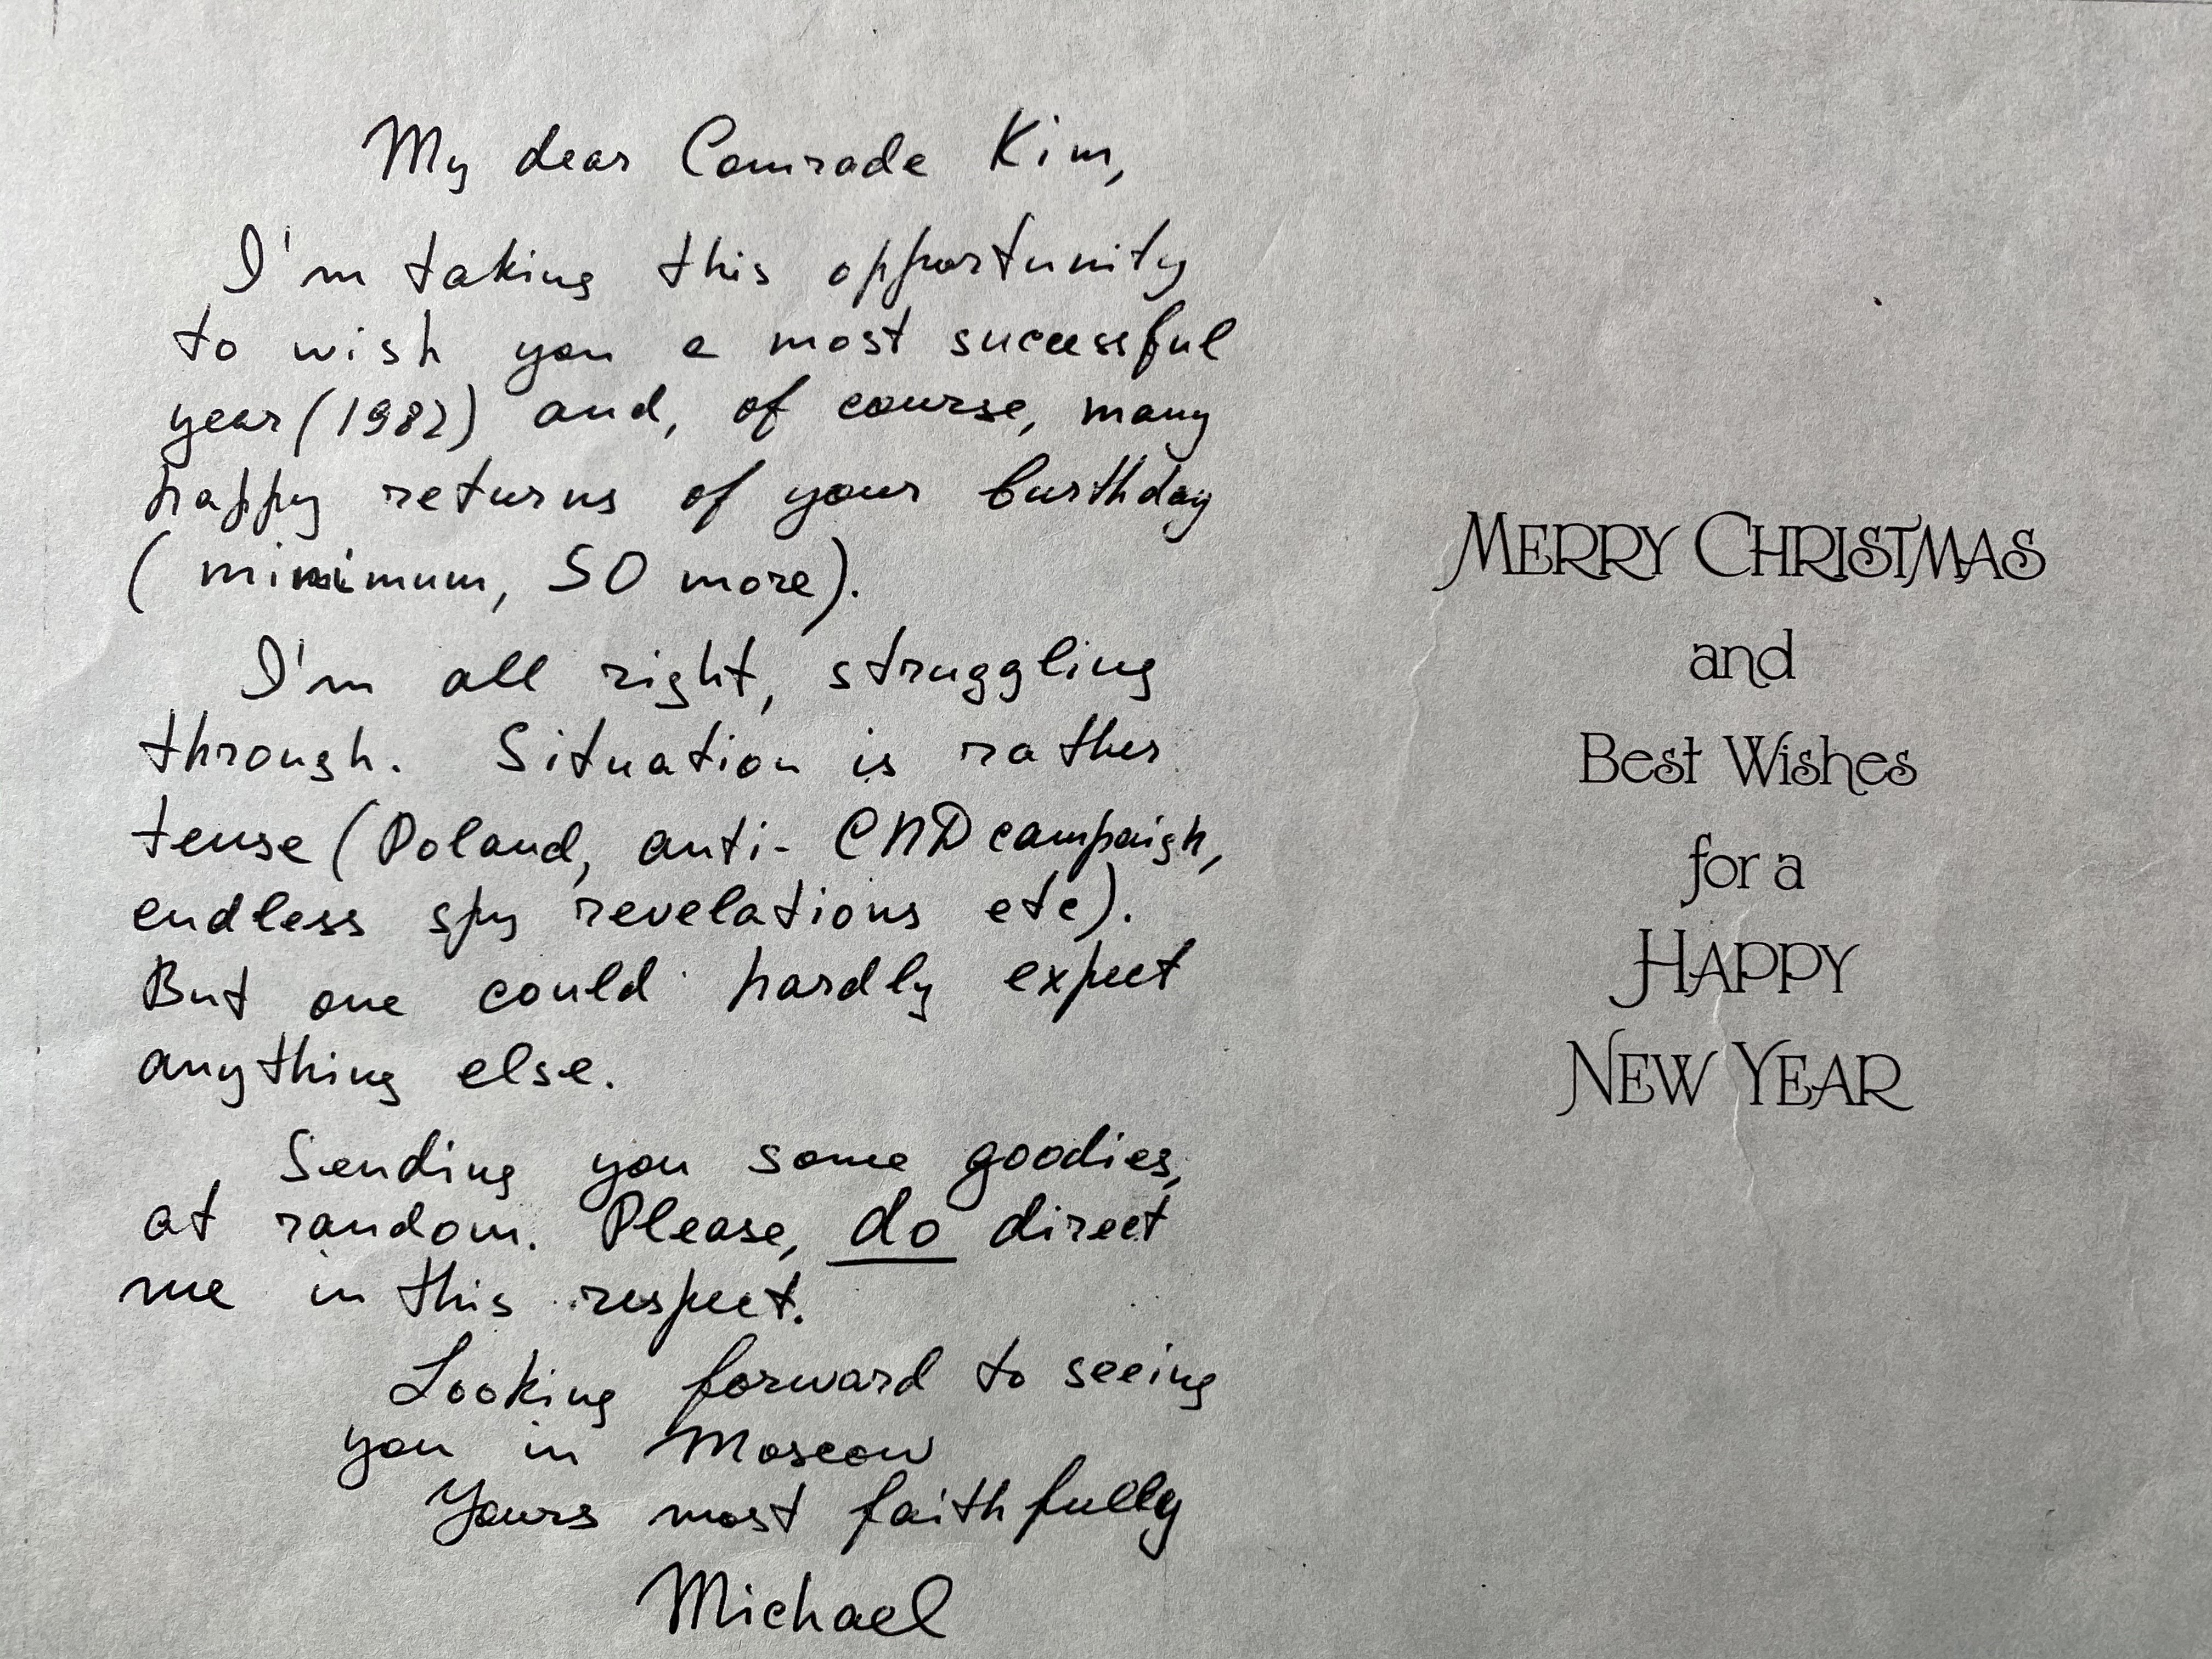 My dear Comrade Kim,
I'm taking this opportunity
to wish you a most successful
year (1982) and, of course, many
happy returns of your birthday
(minimum, 50 more).
I'm all right, struggling
through. Situation is rather
tense (Poland, anti-CND campaign,
endless spy revelations etc).
But one could hardly expect
anything else.
Sending you some goodies,
at random. Please, do direct
me in this respect.
Looking forward to seeing
you in Moscow
Yours most faithfully
Michael
MERRY CHRISTMAS
and
Best Wishes
for a
HAPPY
NEW YEAR